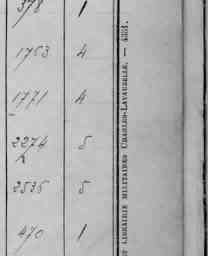 378 1
1753 4
1771 4
2274 5
2535 5
470 1
ET LIBRAIRIE MILITAIRES CHARLES-LAVAUZELLE. —